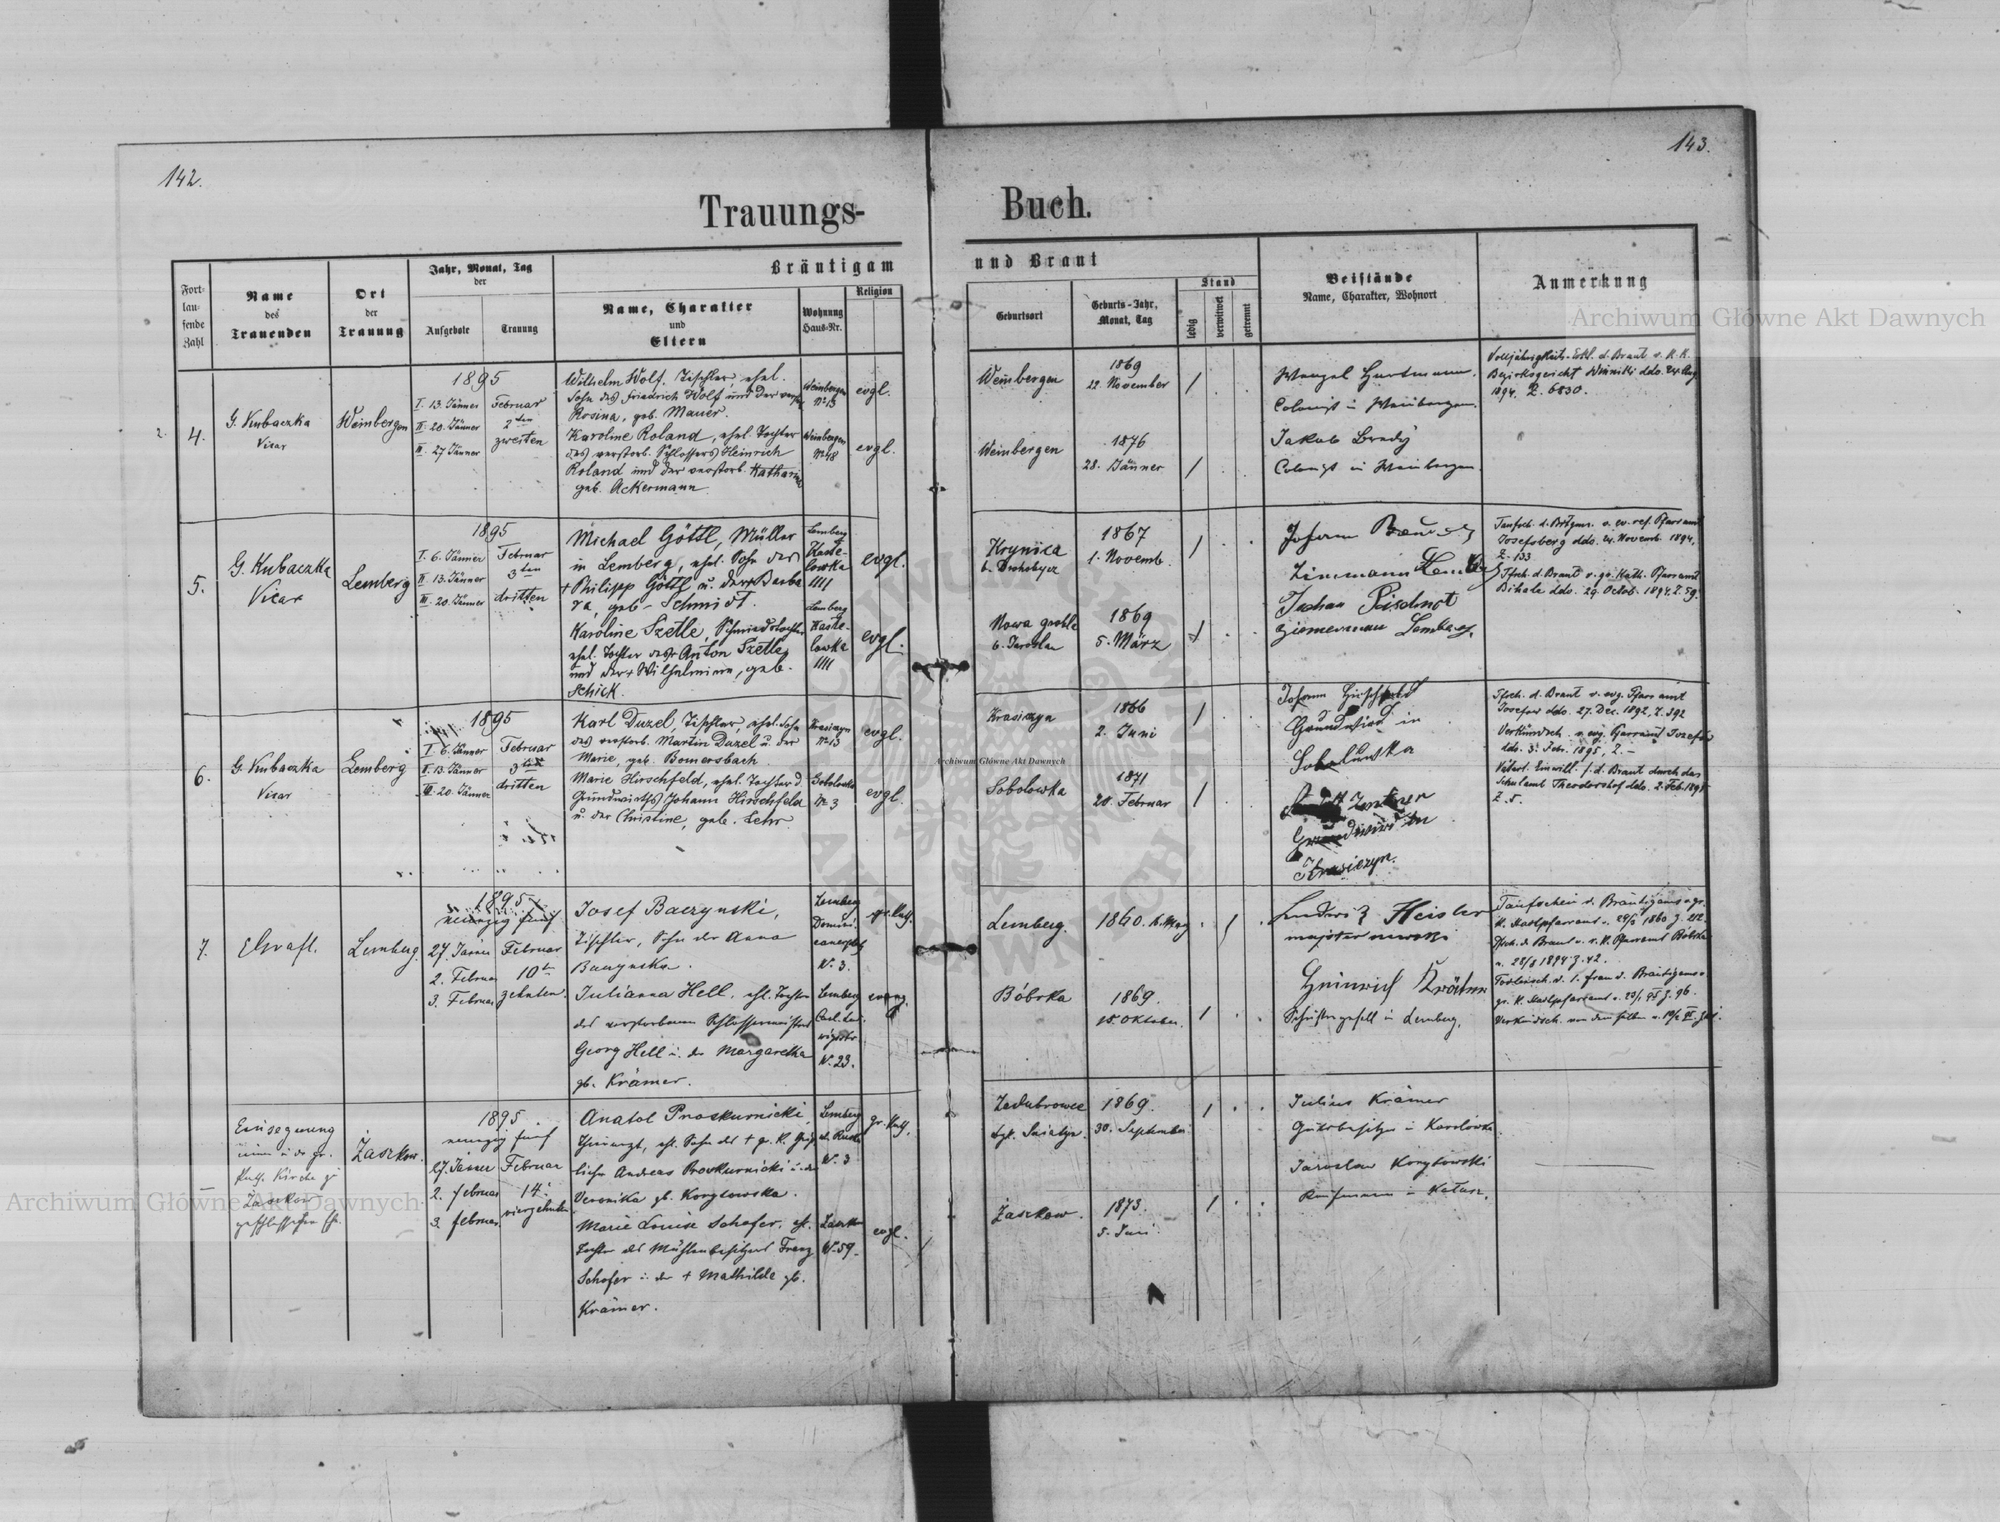 142.
143.
Trauungs-
Buch.
Fort-
lau-
fende
Zahl
Name
des
Trauenden
Ort
der
Trauung
Jahr, Monat, Tag
der
Aufgebote
Trauung
Bräutigam
Name, Charakter
und
Eltern
Wohnung
Haus-Nr.
Religion
und Braut
Geburtsort
Geburts-Jahr,
Monat, Tag
Stand
ledig
verwitwet
getrennt
Beistände
Name, Charakter, Wohnort
Anmerkung
4.
G. Kubaczka
Vicar
Weinbergen
1895
I. 13. Jänner
II. 20. Jänner
III. 27 Jänner
Februar
2ten
zweiten
Wilhelm Wolf, Tischler, ehel.
Sohn des Friedrich Wolf und der verst.
Rosina, geb. Mauer.
Karoline Roland, ehel. Tochter
des verstorb. Schlossers Heinrich
Roland und der verstorb. Katharina
geb. Ackermann
Weinbergen
No 13
Weinbergen
No 18
evgl.
evgl.
Weinbergen
1869
22. November
Weinbergen
1876
28. Jänner
Wenzel Hartmann
Colonist in Weinbergen.
Jakob Bredy
Colonist in Weinbergen.
Volljährigkeits-Erkl. d. Braut v. K. K.
Bezirksgericht Winniki ddo. 24 Aug
1894. Z. 6830.
5.
G. Kubaczka
Vicar
Lemberg
1895
I. 6. Jänner
II. 13. Jänner
III. 20. Jänner
Februar
3ten
dritten
Michael Göttl, Müller
in Lemberg, ehel. Sohn des
+ Philipp Göttl u. der + Barba
ra, geb. Schmidt.
Karoline Szetle, Schmiedstochter
ehel. Tochter des + Anton Szetle
und der + Wilhelmine, geb.
Schick.
Lemberg
Kaste-
lowka
1111
Lemberg
Kaste-
lowka
1111
evgl.
evgl.
Krynica
b. Drohobycz
1867
1. Novemb.
Nowa grobla
b. Jaroslau
1869
5. März
Johann
Zimmann
Lemberg
Taufsch. d. Brtgms. v. ev. ref. Pfarramt
Josefsberg ddo. 24. Novemb. 1894,
Z. 133
Tfsch. d. Braut v. gr. Kath. Pfarramt
Bihale ddo. 29. Octob. 1894. Z. 59.
6.
G. Kubaczka
Vicar
Lemberg
1895
I. 6. Jänner
II. 13. Jänner
III. 20. Jänner
Februar
3ten
dritten
Karl Duzel, Tischler, ehel. Sohn
des verstorb. Martin Duzel u. der
Marie, geb. Bomersbach
Marie Hirschfeld, ehel. Tochter d.
Grundwirths Johann Hirschfeld
u. der Christine, geb. Lehr
Krasiczyn
No 13
Sobolowka
No 3
evgl.
evgl.
Krasiczyn
1866
2. Juni
Sobolowka
1871
20. Februar
Johann Hirschfeld
Grundwird in
Sobolowka
Zentner
Grundwird in
Krasiczyn.
Tfsch. d. Braut v. evg. Pfarramt
Josefow ddo. 27. Dec. 1892, Z. 392
Verkündsch. v. evg. Pfarramt Josefow
ddo. 3. Febr. 1895, Z. —
Väterl. Einwill. f. d. Braut durch das
Schulamt Theodorshof ddo. 2. Feb. 1895
Z. 5.
7.
Graft.
Lemberg.
1895
neunzig fünf
27. Jänner
2. Februar
3. Februar
Februar
10ten
zehnten.
Josef Baczynski,
Tischler, Sohn der Anna
Baczynska.
Julianna Hell, ehl. Tochter
des verstorbenen Schlossermeisters
Georg Hell u. der Margaretha
gb. Krämer.
Lemberg
Domini-
canerplatz
No. 3.
Lemberg
Carl. Lud-
wigsstr.
No. 23.
gr. Kath.
evang.
Lemberg.
1860.
Bóbrka
1869.
15. Oktober.
Ludwig Heisler
majster
Heinrich
in Lemberg.
Taufschein d. Bräutigams v. gr.
1860
Pfarramt Bóbrka
1894 Z. 42.
Todtensch. d. 1. Frau d. Bräutigams v.
Einsegnung
in der gr.
Kath. Kirche zu
Zaszkow
geschlossenen Ehe.
Zaszkow.
1895.
neunzig fünf
27. Jänner
2. Februar
3. Februar
Februar
14.
vierzehnten
Anatol Proskurnicki,
Thierarzt, ehl. Sohn des + gr. K. Geist
lichen Andreas Proskurnicki u. der
Veronika gb. Korytowska.
Marie Louise Schofer, ehl.
Tochter des Mühlenbesitzers Franz
Schofer u. der + Mathilde gb.
Krämer.
Lemberg
No. 3
Zaszkow
No. 59.
gr. Kath.
evgl.
Zadubrowce
1869.
30. September
Zaszkow.
1873.
5. Juni.
Julius Krämer
Gutsbesitzer in Karolówka
Jaroslaw Korytowski
Kaufmann in Kalusz.
Archiwum Główne Akt Dawnych
Archiwum Główne Akt Dawnych
Archiwum Główne Akt Dawnych